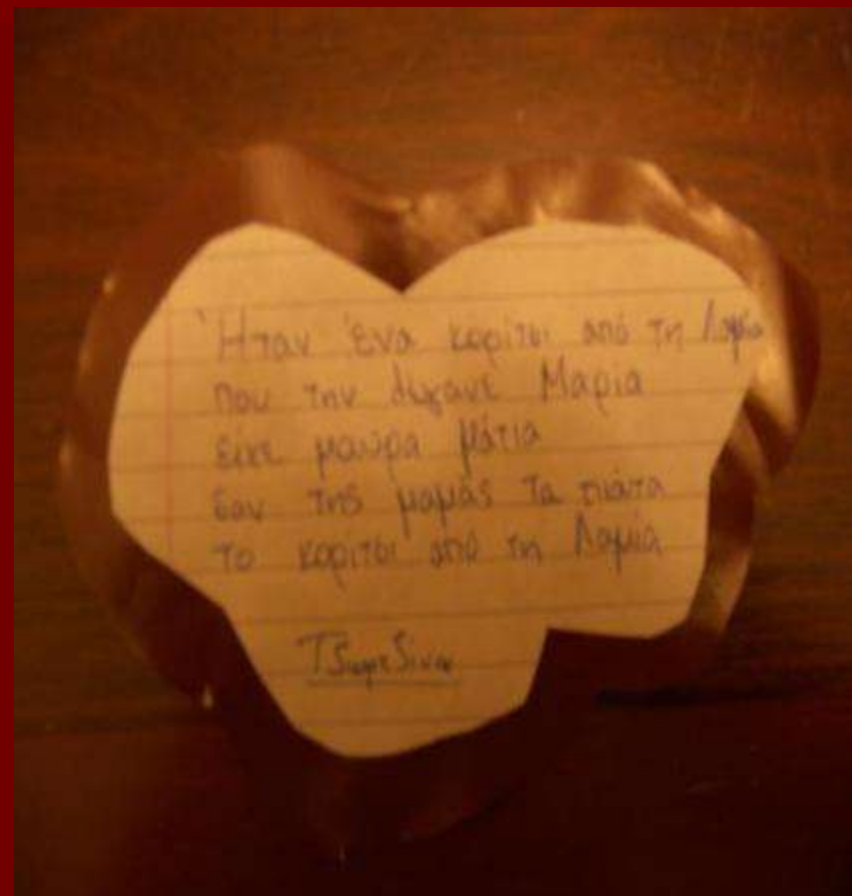 Ήταν ένα κορίτσι από τη Λαμία
που την λέγανε Μαρία
είχε μαύρα μάτια
σαν της μαμάς τα πιάτα
το κορίτσι από τη Λαμία